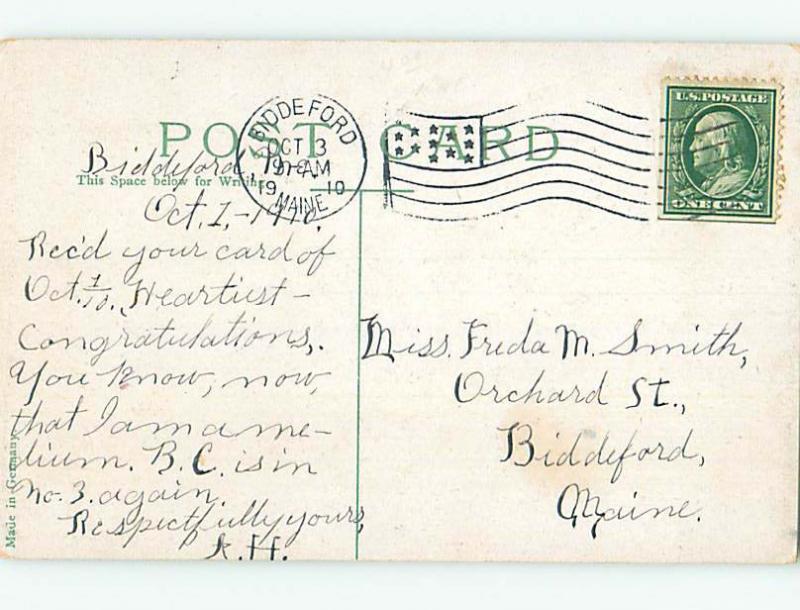 POST CARD
BIDDEFORD
OCT 3
19 10
MAINE
U.S. POSTAGE
ONE CENT
Biddeford, Me.
This Space below for Writing
Oct. 1, - 1910.
Rec'd your card of
Oct. 1/10. Heartiest -
Congratulations,.
You know, now,
that I am a me-
dium. B.C. is in
No. 3. again.
Respectfully yours,
A.H.
Miss. Freda M. Smith,
Orchard St.,
Biddeford,
Maine.
Made in Germany